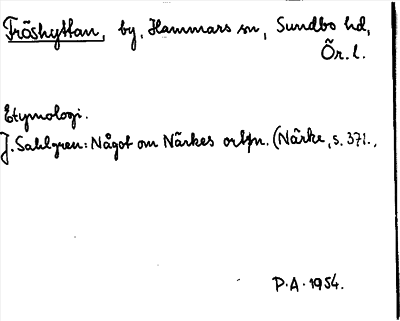 Fröshyttan, by, Hammars sn, Sundbo hd,
Ör. l.
Etymologi.
J. Sahlgren: Något om Närkes ortn. (Närke, s. 371.,
P.A. 1954.